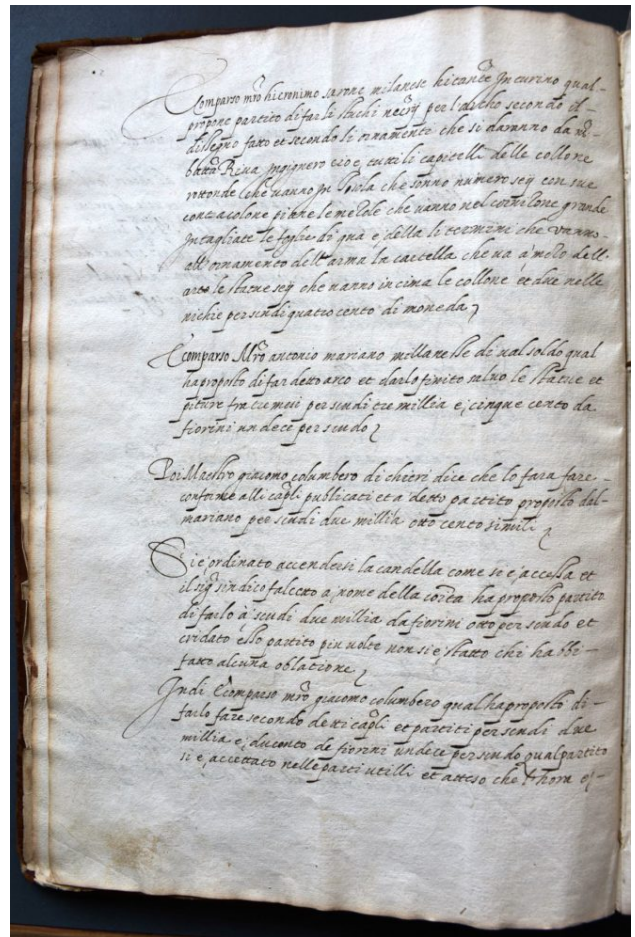 Comparso mro hieronimo sarone milanese hitante In turino qual-
propone partito di far li stuchi necry per l'archo secondo il-
dissegno fatto et secondo li ornamente che si daranno da mr-
batta Riva Ingignero cioe, tutti li capitelli delle collone
rottonde che vanno In Isola che sonno numero sey con sue
contracolone piane le metole che vanno nel cornisone grande
Intagliate le foglie di qua e, della li termini che vanno-
all'ornamento dell'arma la cartella che va à molo dell-
arco le statue sey che vanno in cima le collone et due nelle
nichie per scudi quatro cento di moneda
È comparso Mro antonio mariano millanesse di valsoldo qual
ha proposto di far detto arco et darlo finito salvo le statue et
piture fra tre mesi per scudi tre millia e, cinque cento da
fiorini undece per scudo
Poi Maestro giacomo columbero di chieri dice che lo fara fare-
conforme alli capli publicati et a detto partito proposto dal-
mariano per scudi due millia otto cento simili
Si e' ordinato accendersi la candella come si e, accessa et
il sigr sindico falcato a, nome della cita ha proposto partito
di farlo à scudi due millia da fiorini otto per scudo et
cridato esso partito piu volte non si e, stato chi habbi-
fatto alcuna oblatione
Indi È comparso mro giacomo columbero qual ha proposto di-
farlo fare secondo detti capli et partiti per scudi due
millia e, ducento de fiorini undece per scudo qual partito
si e, accettato nelle parti utilli et atteso che l'hora e,-